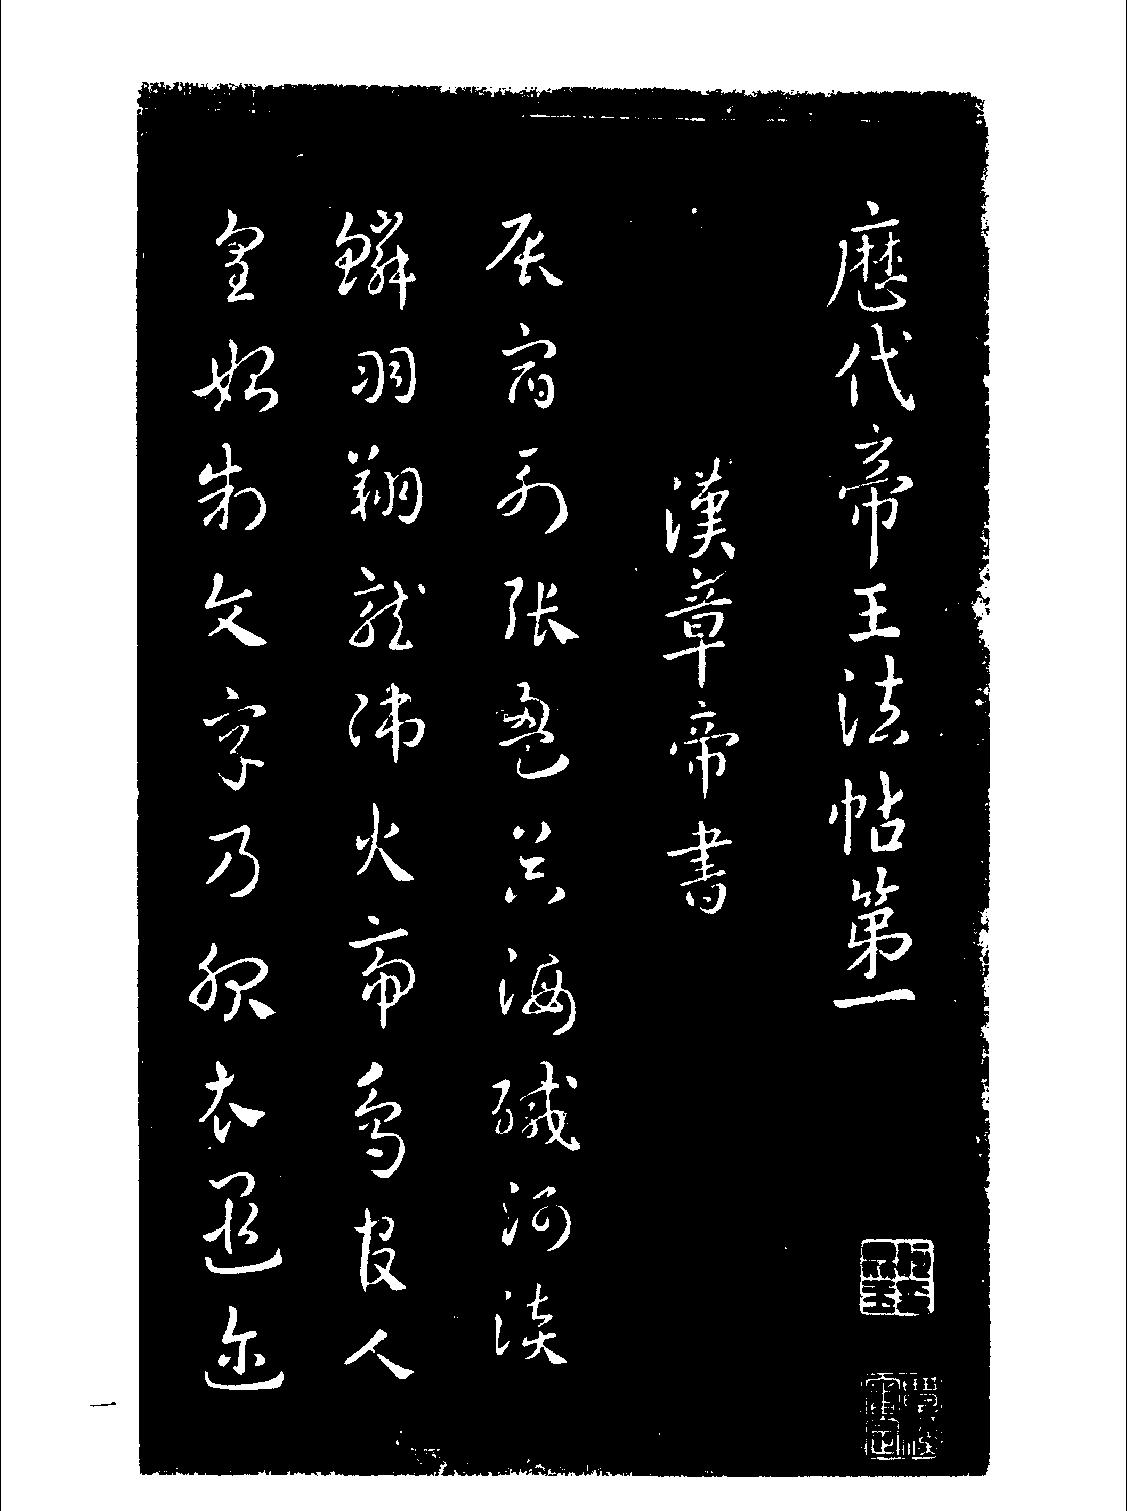 歷代帝王法帖第一
漢章帝書
辰宿列張重芥海鹹河淡
鱗羽翔龍師火帝鳥官人
皇始制文字乃服衣遐邇
一